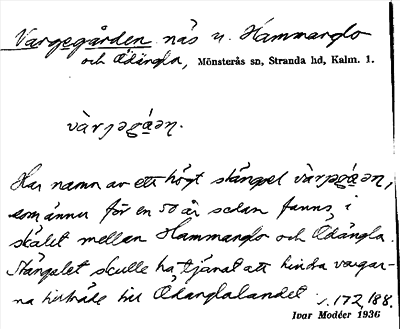 Vargegården näs u. Hammarglo
och Ödängla, Mönsterås sn, Stranda hd, Kalm. l.
Har namn av ett högt stängsel
som ännu för en 50 år sedan fanns i
skälet mellan Hammarglo och Ödängla.
Stängslet skulle ha tjänat att hindra vargar-
na inträde till Ödänglalandet s. 172, 188.
Ivar Modéer 1936